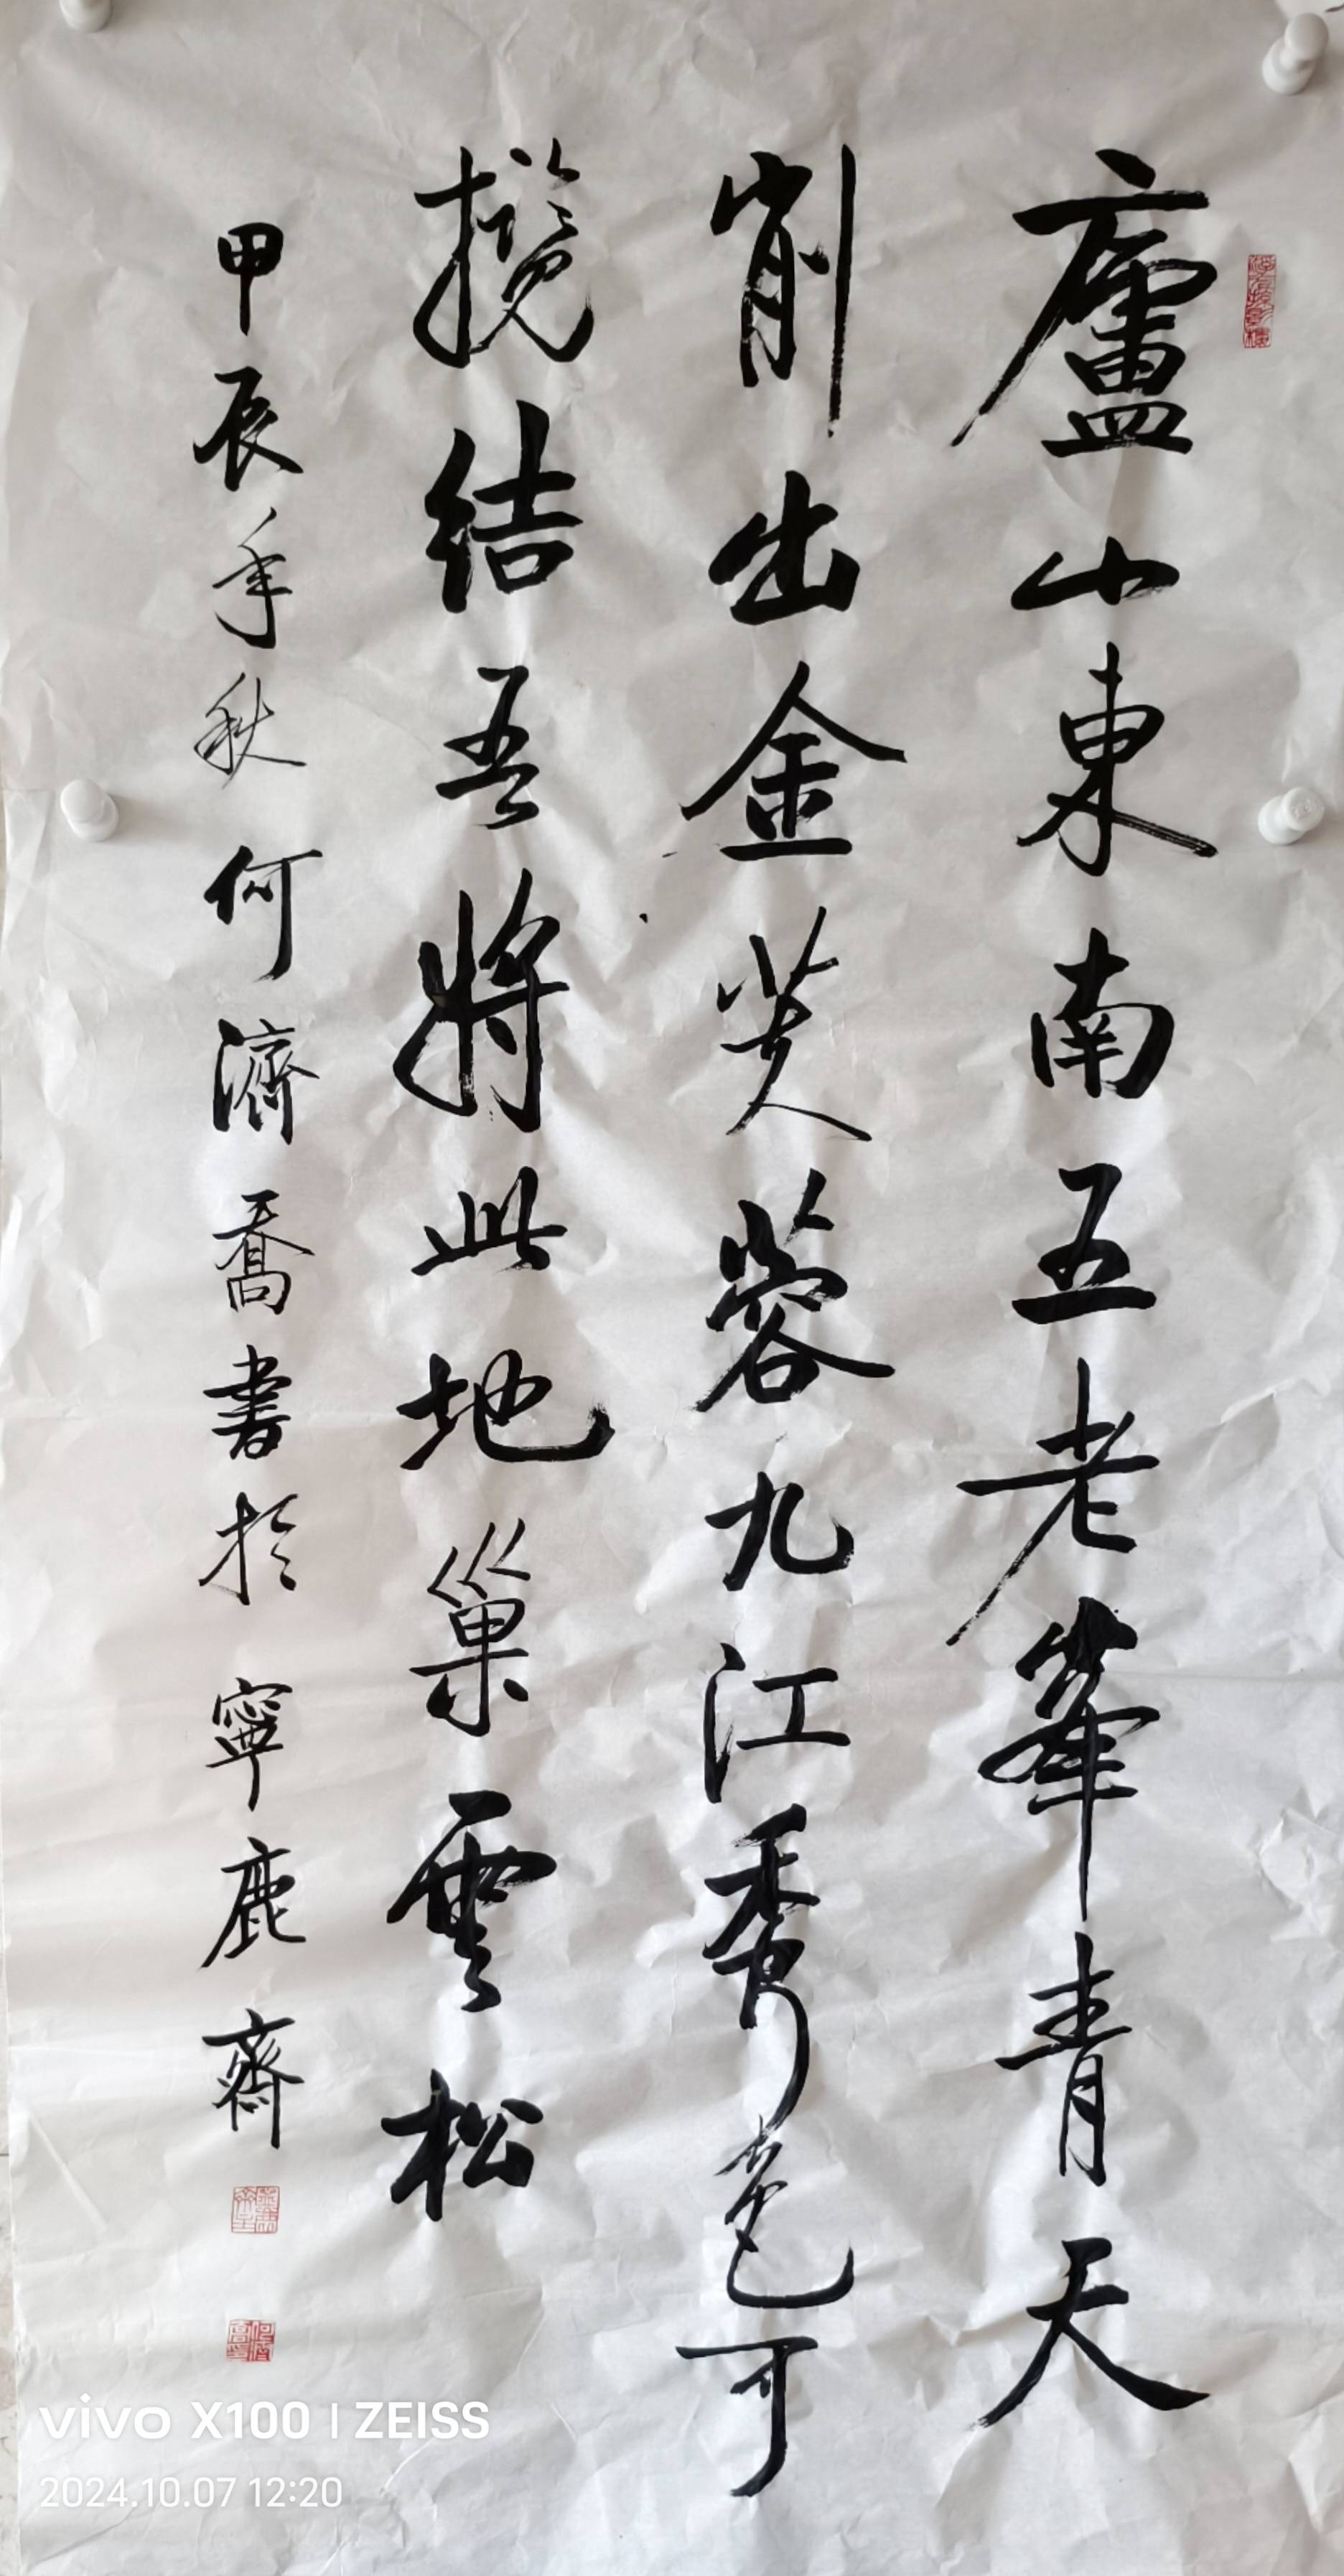 廬山東南五老峯青天
削出金芙蓉九江秀色可
攬結吾將此地巢雲松
甲辰年秋何濟喬書於寧鹿齋
vivo X100 | ZEISS
2024.10.07 12:20